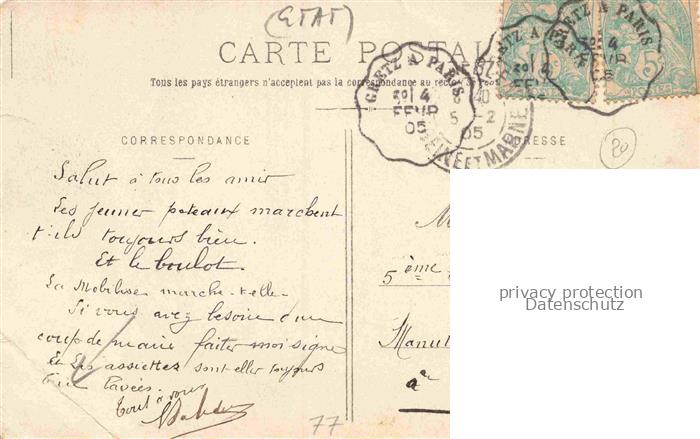 (ETAT)
CARTE POSTALE
Tous les pays étrangers n'acceptent pas la correspondance au recto
CORRESPONDANCE
ADRESSE
GRETZ A PARIS
4
FEVR
05
GRETZ A PARIS
4
FEVR
GRETZ A PARIS
4
5-2
05
SEINE ET MARNE
5
20
Salut à tous les amis
Les jeunes poteaux marchent
t'ils toujours bien.
Et le boulot.
La Mobilise marche-t-elle
Si vous avez besoin d'un
coup de main faites moi signe
Et les assiettes sont-elles toujours
bien lavées.
Tout à vous
M
5ème
Manut
77
privacy protection
Datenschutz